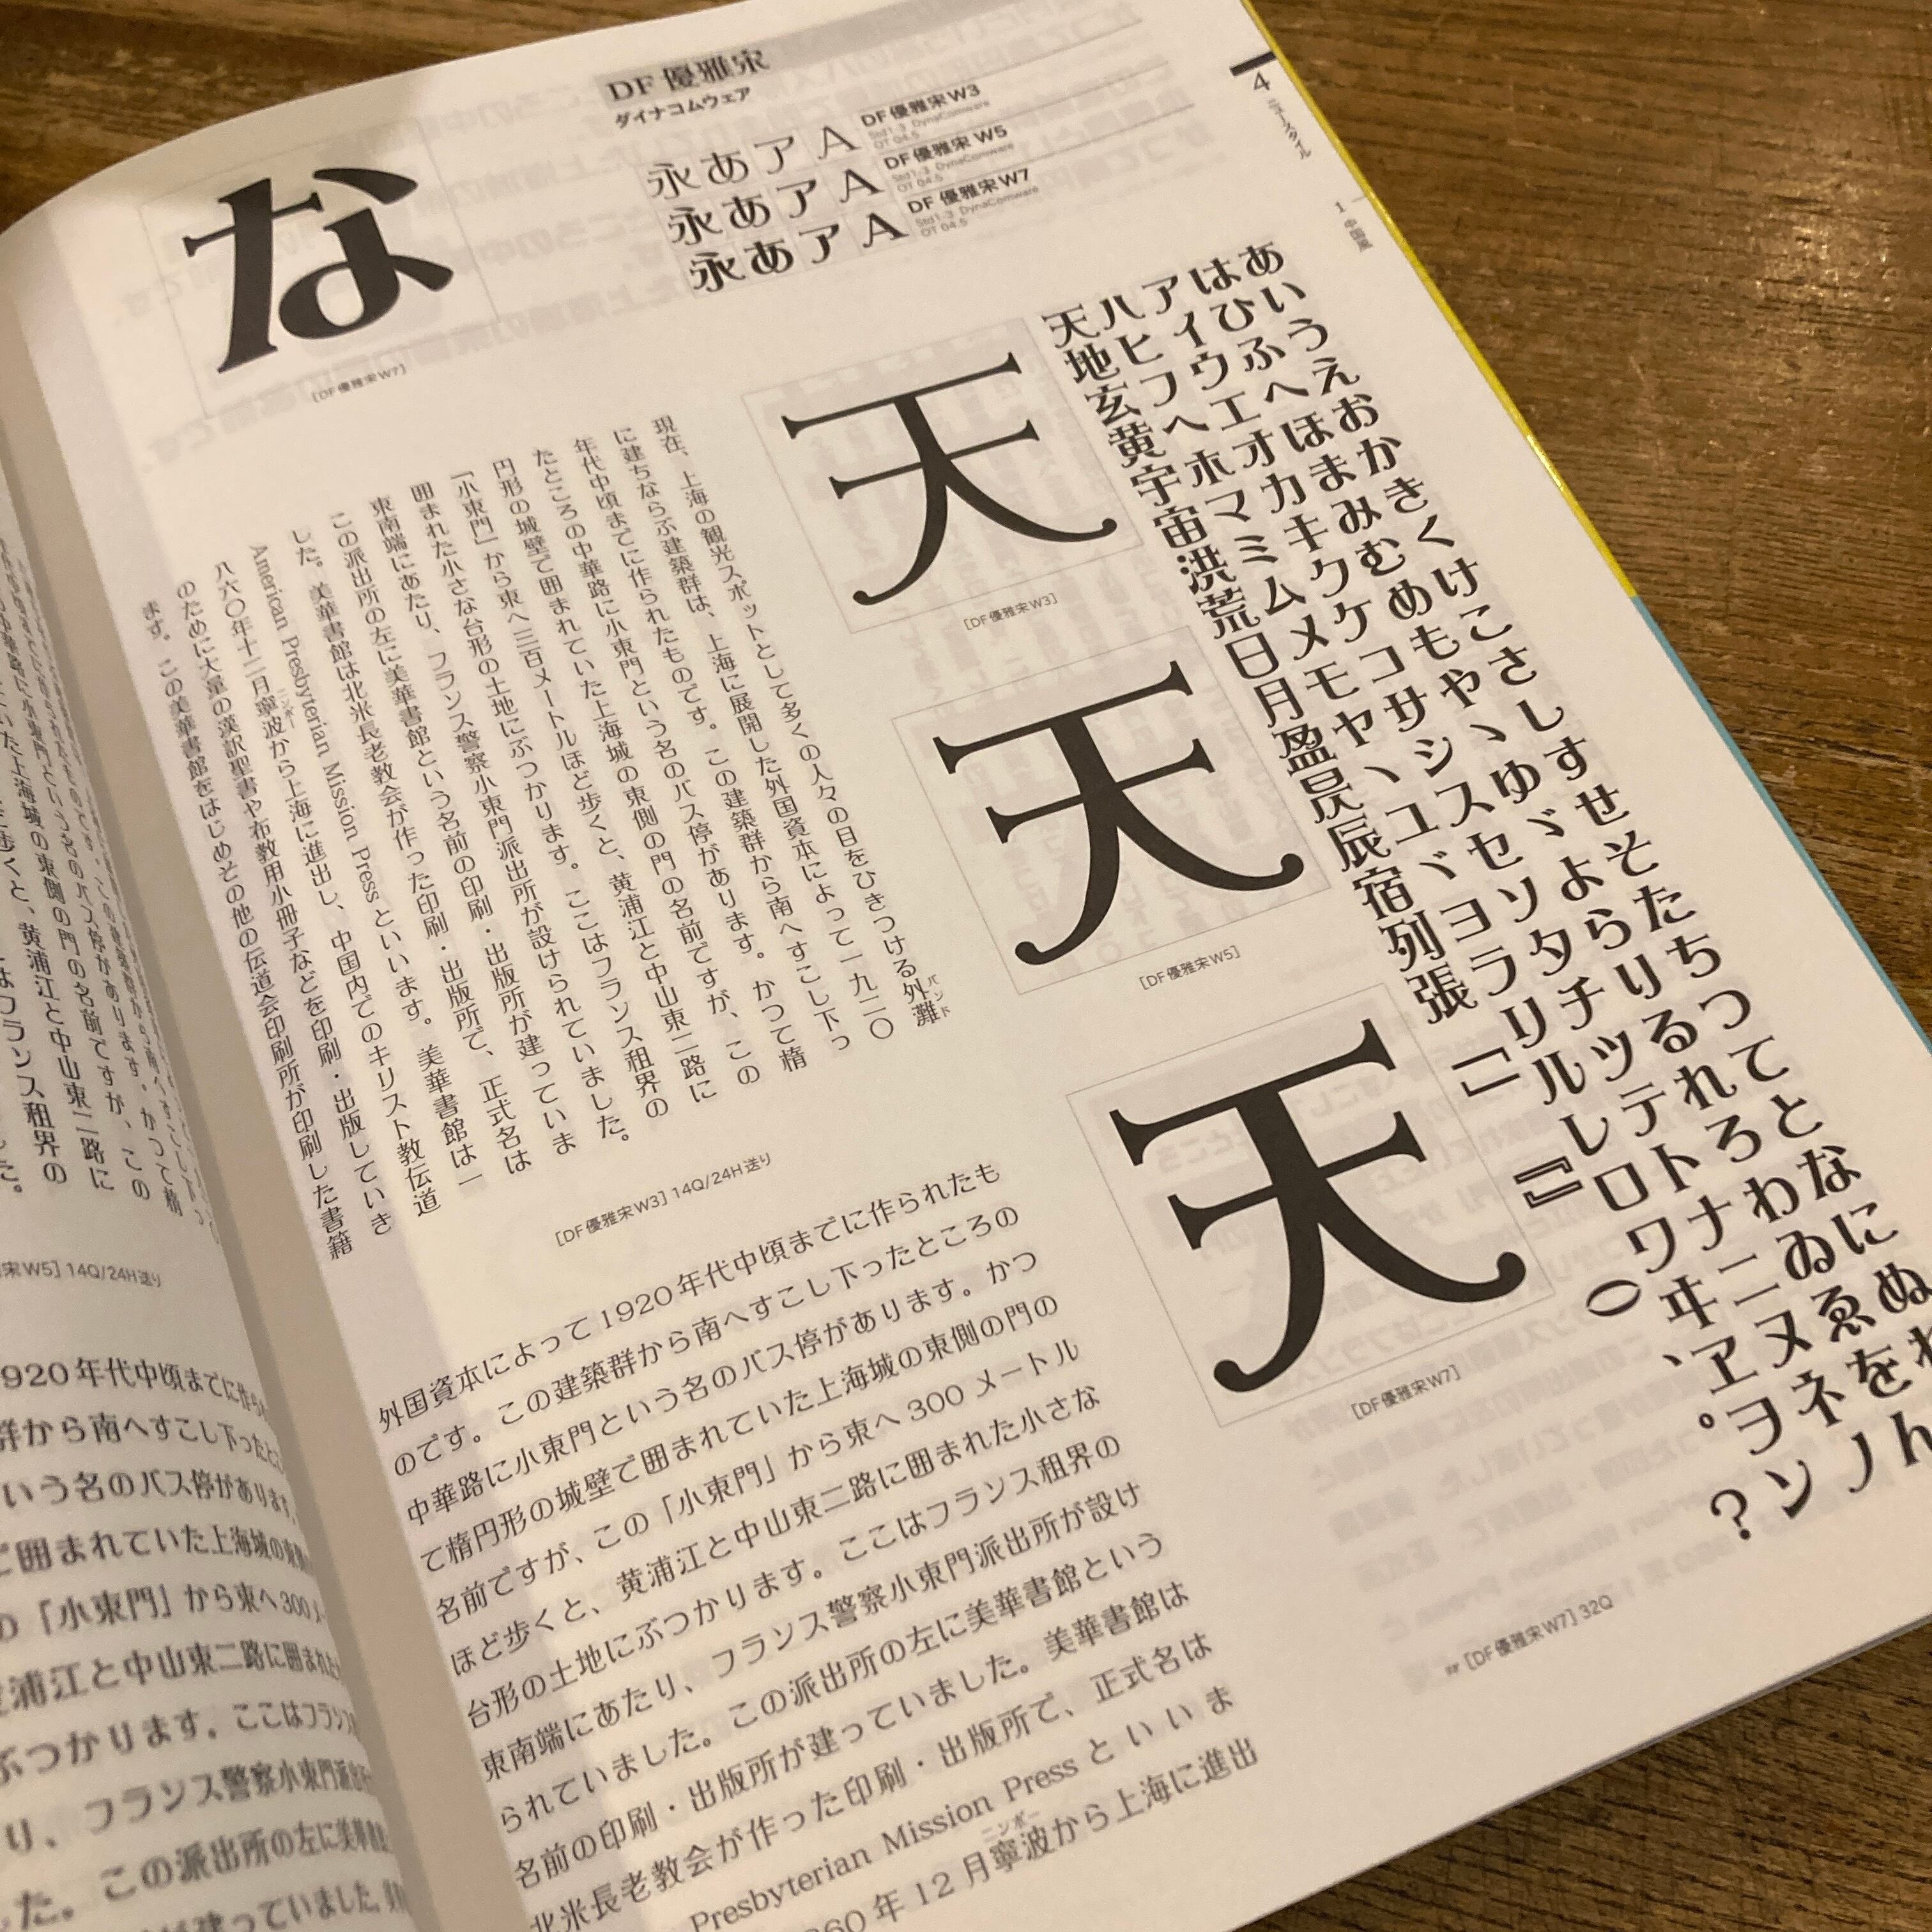 DF 優雅宋
ダイナコムウェア
永あアA
DF 優雅宋 W3
Std1-3 DynaComware
OT 04.5
永あアA
DF 優雅宋 W5
Std1-3 DynaComware
OT 04.5
永あアA
DF 優雅宋 W7
Std1-3 DynaComware
OT 04.5
4
ニュースタイル
1
中国風
な
[DF優雅宋W7]
あいうえおかきくけこさしすせそたちつてとなにぬね
はひふへほまみむめもや、ゆゞよらりるれろわゐゑをん
アイウエオカキクケコサシスセソタチツテトナニヌネノ
ハヒフヘホマミムメモヤ、ユヾヨラリルレロワヰヱヲン
天地玄黄宇宙洪荒日月盈昃辰宿列張「」『』()、。?
天
[DF優雅宋W3]
天
[DF優雅宋W5]
天
[DF優雅宋W7]
☞ [DF優雅宋W7] 32Q
現在、上海の観光スポットとして多くの人々の目をひきつける外灘
バンド
に建ちならぶ建築群は、上海に展開した外国資本によって一九二〇
年代中頃までに作られたものです。この建築群から南へすこし下っ
たところの中華路に小東門という名のバス停があります。かつて楕
円形の城壁で囲まれていた上海城の東側の門の名前ですが、この
「小東門」から東へ三百メートルほど歩くと、黄浦江と中山東二路に
囲まれた小さな台形の土地にぶつかります。ここはフランス租界の
東南端にあたり、フランス警察小東門派出所が設けられていました。
この派出所の左に美華書館という名前の印刷・出版所が建っていま
した。美華書館は北米長老教会が作った印刷・出版所で、正式名は
American Presbyterian Mission Press といいます。美華書館は一
八六〇年十二月寧波から上海に進出し、中国内でのキリスト教伝道
ニンポー
のために大量の漢訳聖書や布教用小冊子などを印刷・出版していき
ます。この美華書館をはじめその他の伝道会印刷所が印刷した書籍
[DF優雅宋W3] 14Q/24H送り
外国資本によって1920年代中頃までに作られたも
のです。この建築群から南へすこし下ったところの
中華路に小東門という名のバス停があります。かつ
て楕円形の城壁で囲まれていた上海城の東側の門の
名前ですが、この「小東門」から東へ300メートル
ほど歩くと、黄浦江と中山東二路に囲まれた小さな
台形の土地にぶつかります。ここはフランス租界の
東南端にあたり、フランス警察小東門派出所が設け
られていました。この派出所の左に美華書館という
名前の印刷・出版所が建っていました。美華書館は
北米長老教会が作った印刷・出版所で、正式名は
Presbyterian Mission Press といいま
860年12月寧波から上海に進出
ニンポー
宋W5] 14Q/24H送り
920年代中頃までに作られ
群から南へすこし下ったと
いう名のバス停があります
で囲まれていた上海城の東側
の「小東門」から東へ300メ
黄浦江と中山東二路に囲まれた
ぶつかります。ここはフランス
り、フランス警察小東門派出所
した。この派出所の左に美華書
が建っていました。美